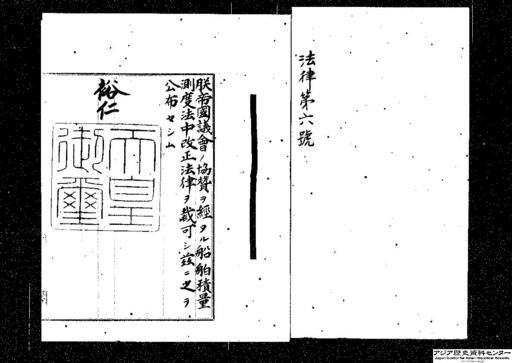 法律第六號
朕帝國議會ノ協贊ヲ經タル船舶積量
測度法中改正法律ヲ裁可シ茲ニ之ヲ
公布セシム
裕仁
天皇
御璽
アジア歴史資料センター
Japan Center for Asian Historical Records